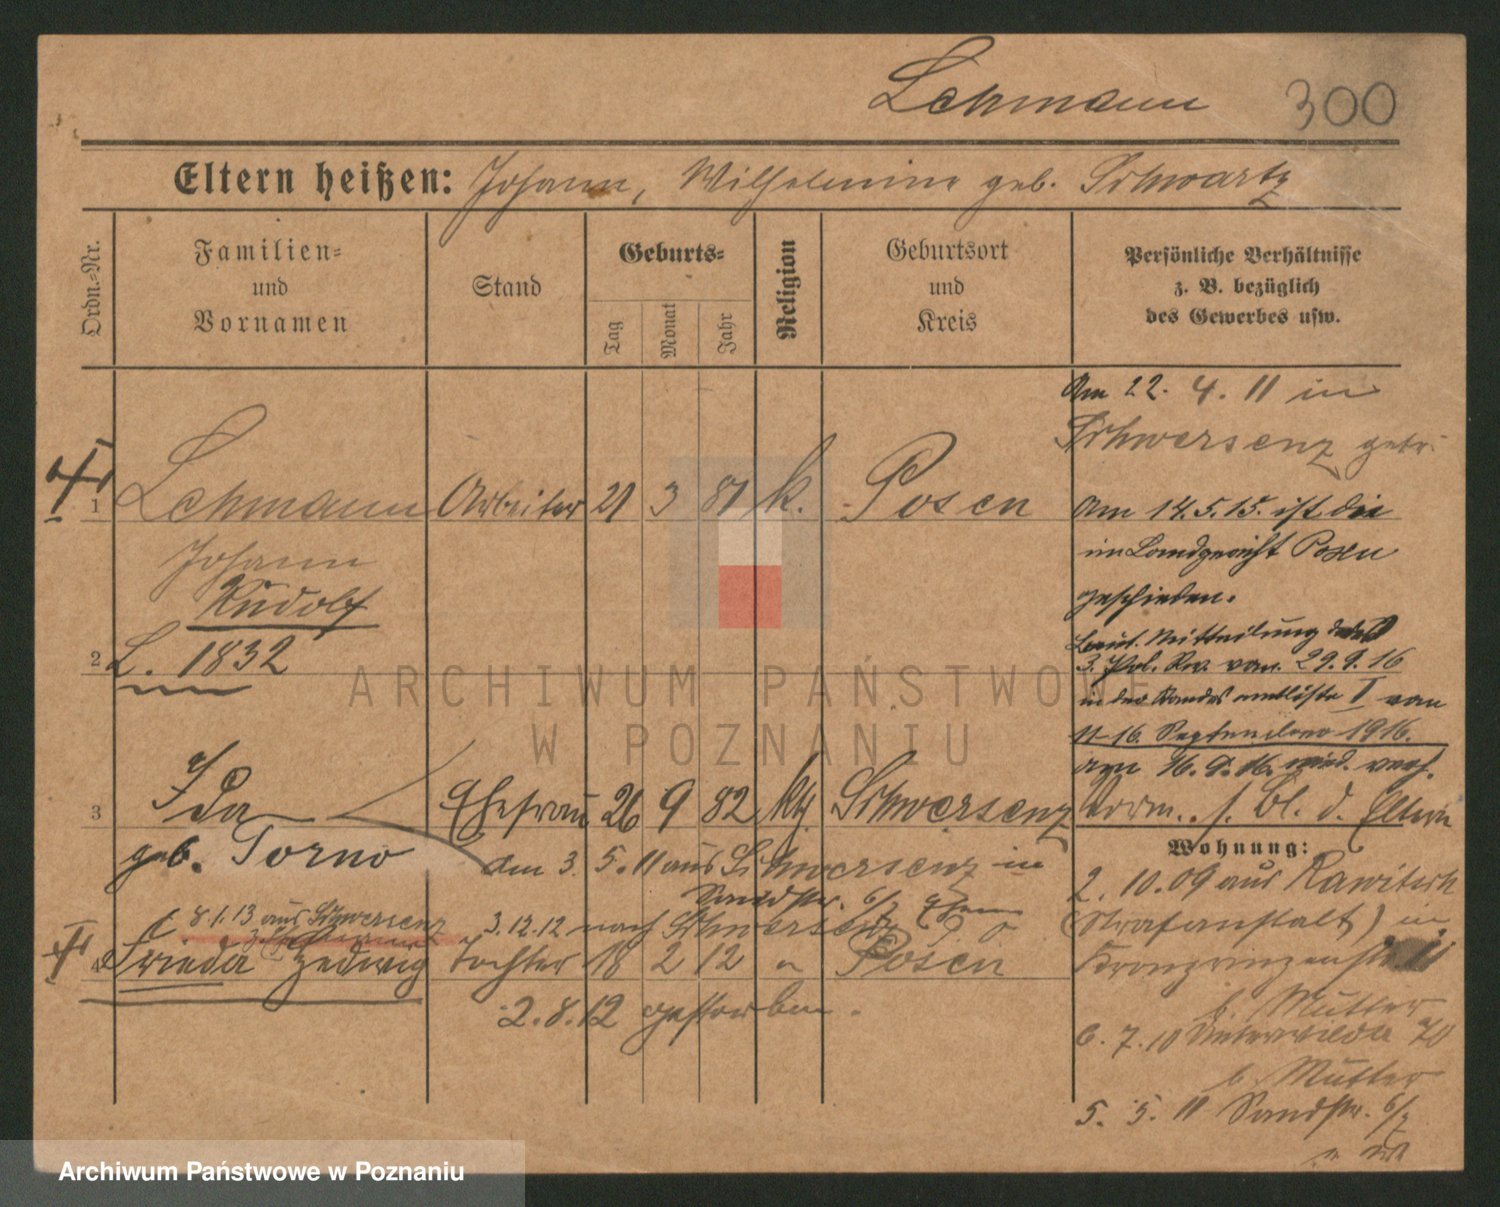 Lehmann 300
Eltern heißen: Johann, Wilhelmine geb. Schwartz
Ordn.-Nr.
Familien-
und
Vornamen
Stand
Geburts-
Tag
Monat
Jahr
Religion
Geburtsort
und
Kreis
Persönliche Verhältnisse
z. B. bezüglich
des Gewerbes usw.
Am 22. 4. 11 in
Schwersenz getr.
1 Lehmann Arbeiter 21 3 81 k. Posen
Johann
Rudolf
2 L. 1832
Am 14.5.15. ist die
im Landgericht Posen
geschieden.
Laut Mitteilung des
3. Pol. Rev. vom 29.9.16
in der Standesamtsliste I vom
11-16. September 1916.
am 16. 9. 16. wied. verh.
Verm. s. Bl. d. Eltern
3 Ida Ehefrau 26 9 82 kth. Schwersenz
geb. Torno
am 3. 5. 11 aus Schwersenz in
Sandstr. 6/7
8.1.13 aus Schwersenz
3.12.12 nach Schwersenz
4 Frieda Hedwig Tochter 18 2 12 " Posen
2.8.12 gestorben.
Wohnung:
2. 10.09 aus Rawitsch
(Strafanstalt) in
Kronprinzenstr.
b. Mutter
6. 7. 10 Unterwilda 70
b. Mutter
5. 5. 11 Sandstr. 6/7
ARCHIWUM PAŃSTWOWE
W POZNANIU
Archiwum Państwowe w Poznaniu